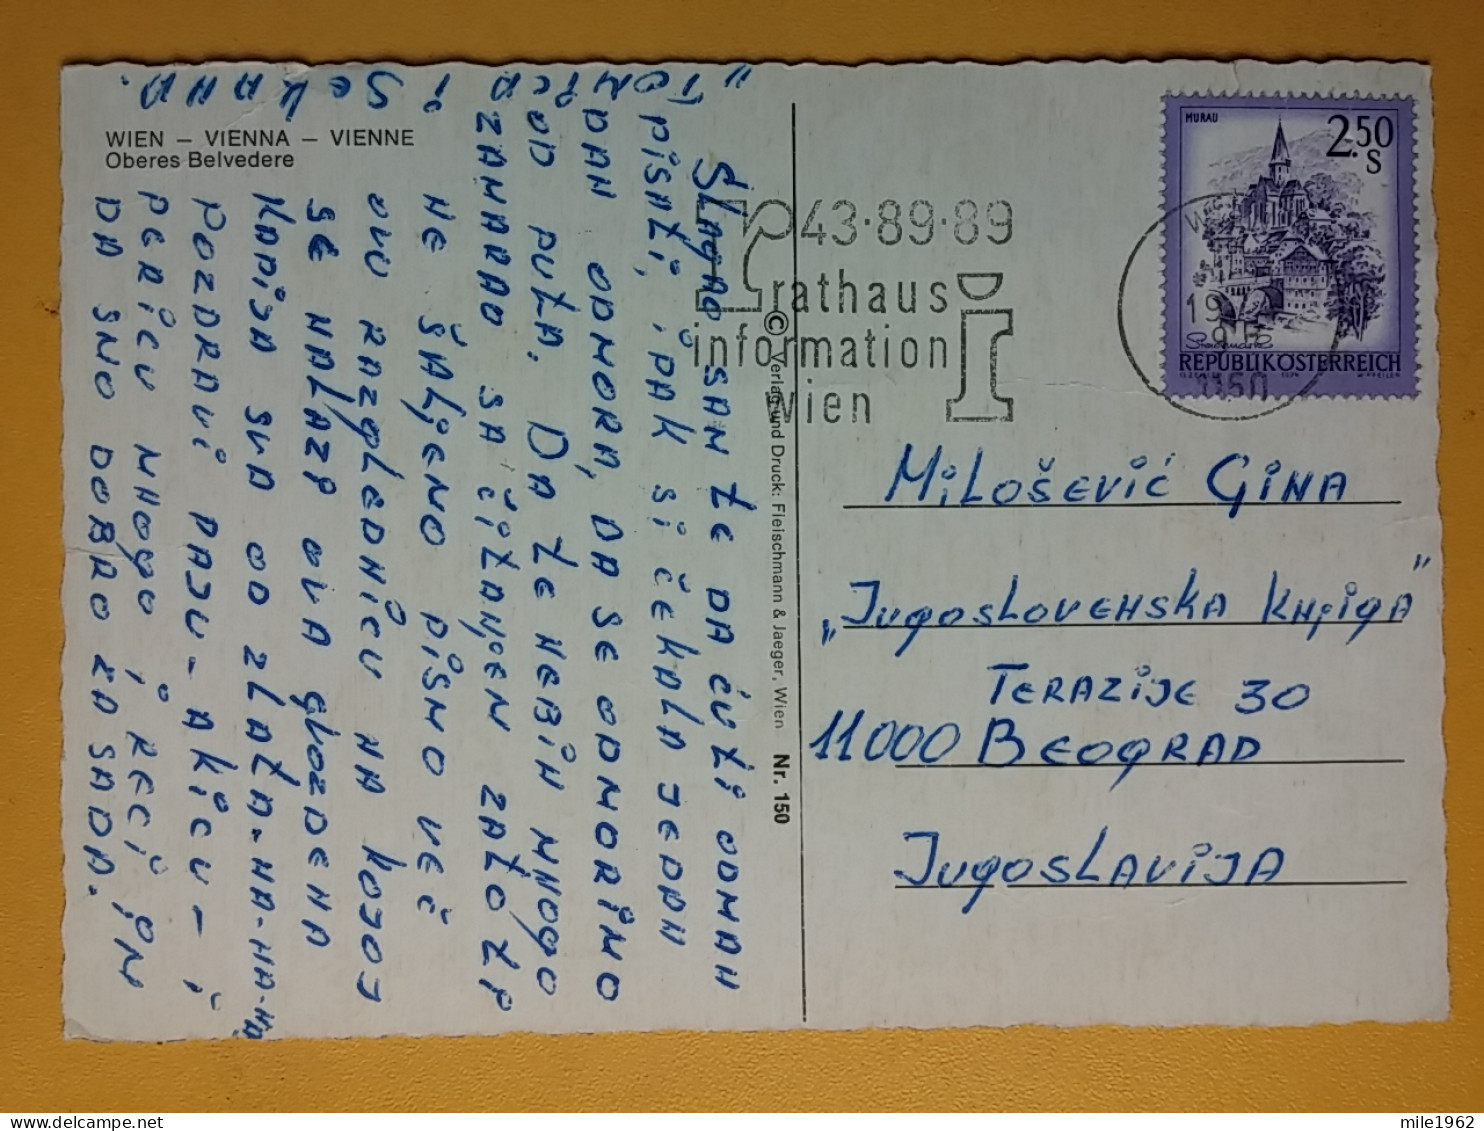 WIEN – VIENNA – VIENNE
Oberes Belvedere
„
SLAGAO SAM TE DA ĆUTI ODMAH
PISATI, IPAK SI ČEKALA JEDAN
DAN ODMORA, DA SE ODMORIMO
OD PUTA. DA TE NEBIH MNOGO
ZAMARAO SA ČITANJEM ZATO TI
NE ŠALJEMO PISMO VEĆ
OVU RAZGLEDNICU NA KOJOJ
SE NALAZI OVA GVOZDENA
KAPIJA SVA OD ZLATA-HA-HA-HA-HA
POZDRAVI PAJU-AKICU-I
PERICU MNOGO I RECI IM
DA SMO DOBRO ZA SADA.
TOMICA
i SEKANA.
© Verlag und Druck: Fleischmann & Jaeger, Wien Nr. 150
43·89·89
rathaus
information
wien
MURAU
2.50
S
REPUBLIK ÖSTERREICH
1150
MILOŠEVIĆ GINA
„JUGOSLOVENSKA KNJIGA"
TERAZIJE 30
11000 BEOGRAD
JUGOSLAVIJA
mile1962